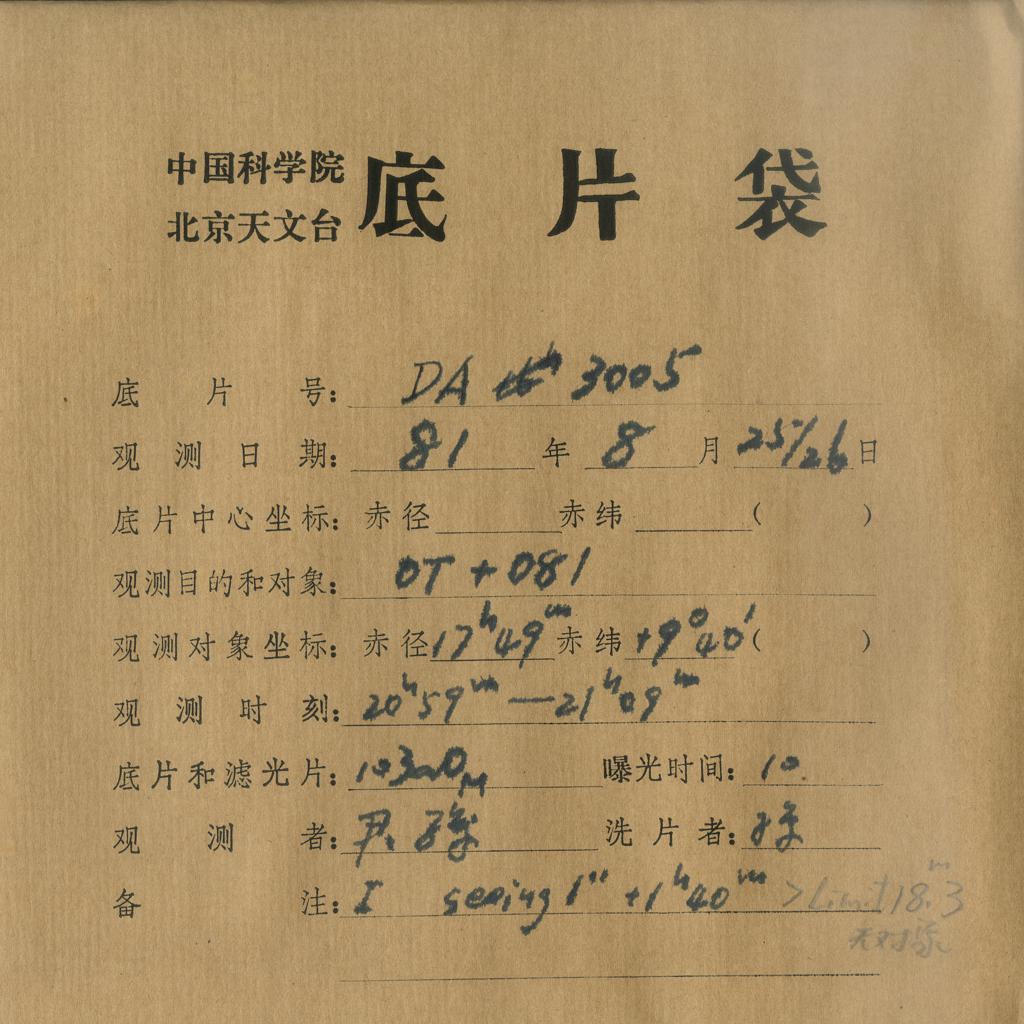 中国科学院
北京天文台
底片袋
底片号: DA 3005
观测日期: 81年 8月 25/26日
底片中心坐标: 赤径 赤纬 ( )
观测目的和对象: OT+081
观测对象坐标: 赤径 17h49m 赤纬 +9°40′ ( )
观测时刻: 20h59m—21h09m
底片和滤光片: 曝光时间: 10
观测者: 尹 孙 洗片者: 孙
备注: I seeing 1" +1h40m >Limit 18.m3
无对象